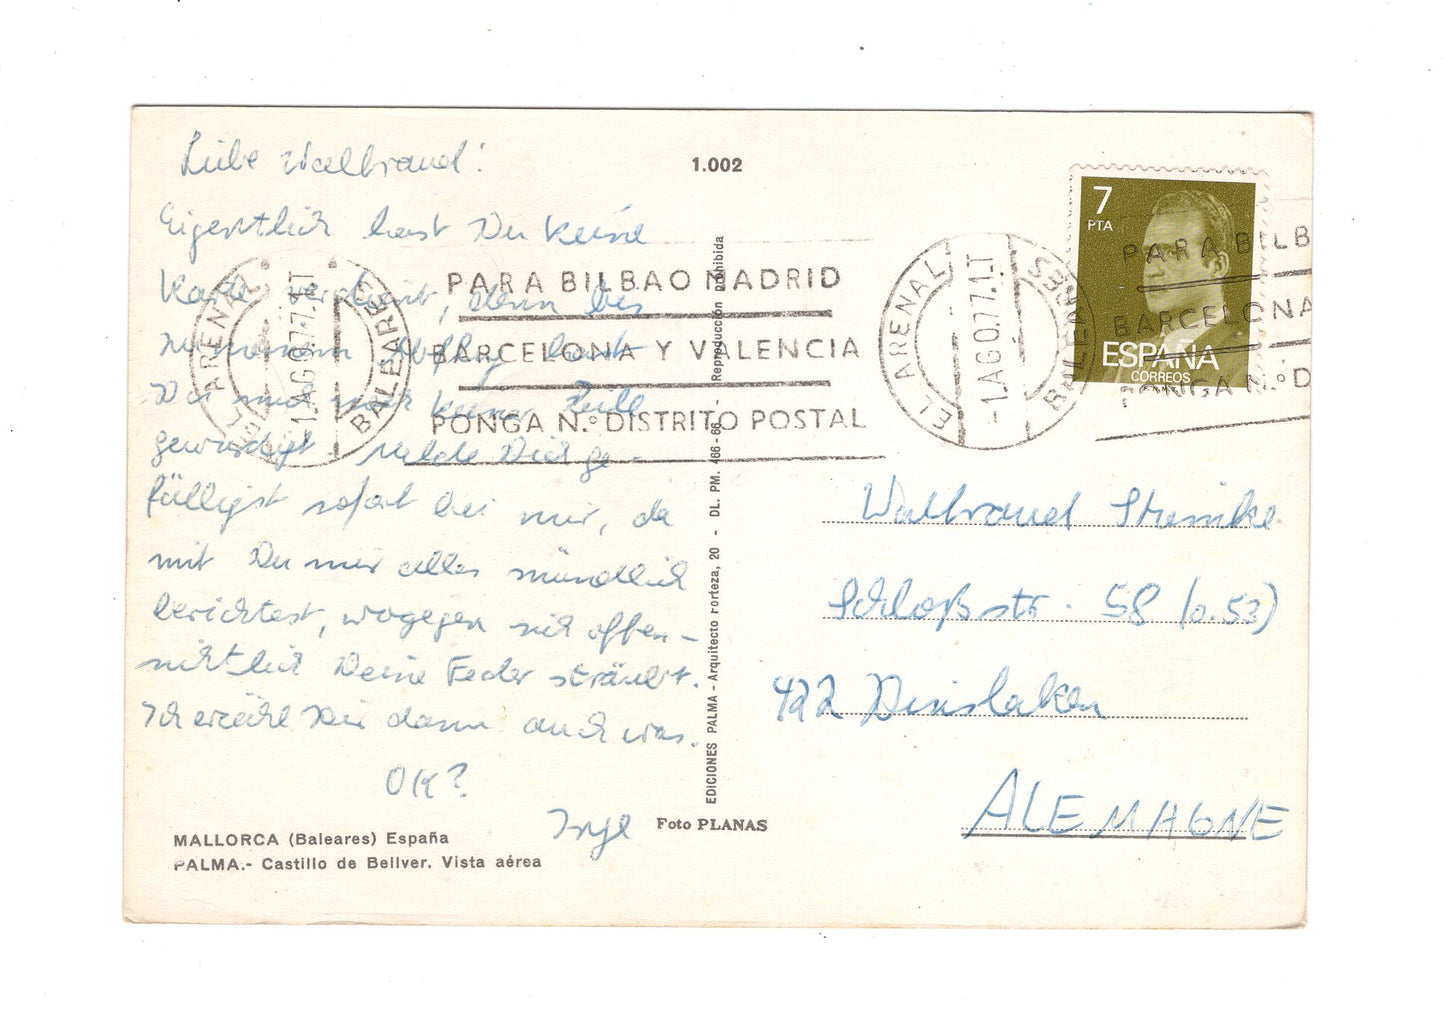 Liebe Walbraud!
Eigentlich hast Du keine
Karte verdient, denn bis
zu meinem Abflug hast
Du mich noch keiner Zeile
gewürdigt. Melde Dich ge-
fälligst sofort bei mir, da
mit Du mir alles mündlich
berichtest, wogegen sich offen-
sichtlich Deine Feder sträubt.
Ich erzähl Dir dann auch was.
OK?
Inge
MALLORCA (Baleares) España
PALMA.- Castillo de Bellver. Vista aérea
1.002
EDICIONES PALMA - Arquitecto Forteza, 20 - DL. PM. 466-66 - Reproducción prohibida
Foto PLANAS
EL ARENAL
-1.AGO.77.1.T
BALEARES
PARA BILBAO MADRID
BARCELONA Y VALENCIA
PONGA N.º DISTRITO POSTAL
EL ARENAL
-1.AGO.77.1.T
BALEARES
PARA BILB
BARCELONA
PONGA N.º D
7
PTA
ESPAÑA
CORREOS
Walbraud
Schloßstr. 58 (0.53)
422 Dinslaken
ALEMAGNE